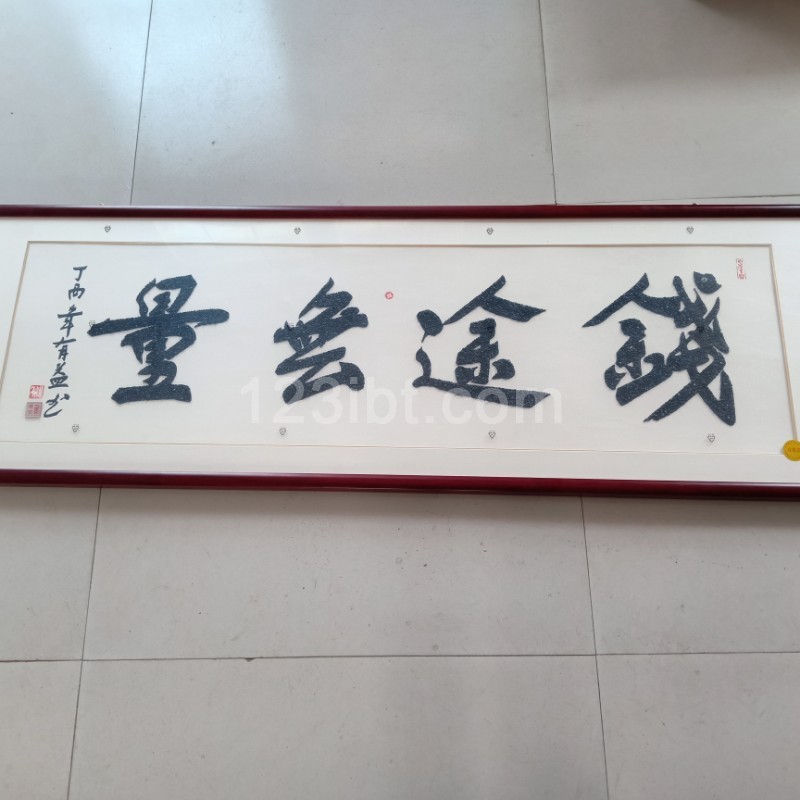 錢途無量
丁酉年有益书
123ibt.com